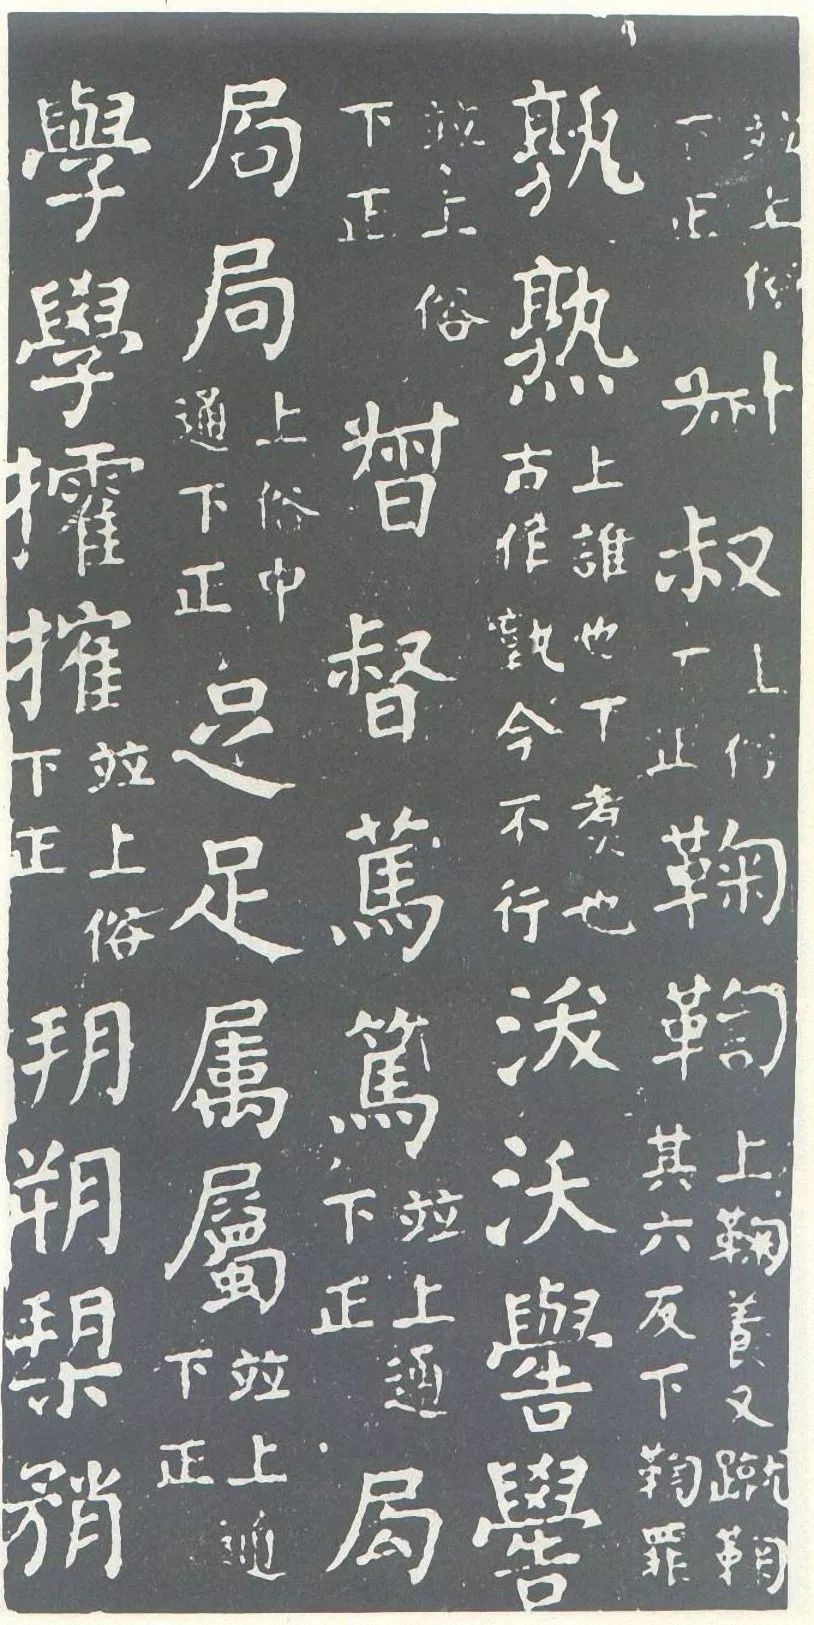 並上俗下正 𠦑 叔 上俗下正 鞠 鞫 上鞠養又蹴鞠其六反下鞫罪
孰 熟 上誰也下煮也古作孰今不行 沃 譽 嚳
並上俗下正 督 篤 篤 並上通下正 局
局 局 上俗中通下正 足 足 属 屬 並上通下正
學 學 㩴 搉 並上俗下正 朔 槊